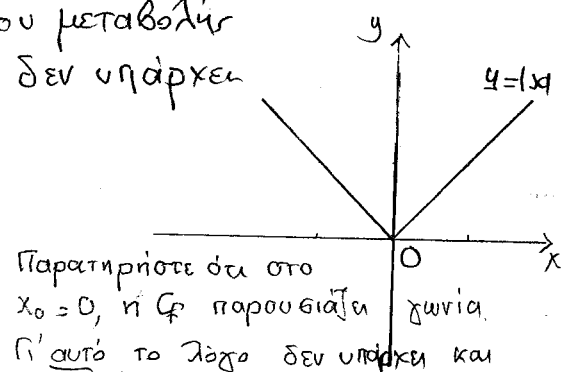 ου μεταβολής
δεν υπάρχει
y
y=|x|
O
x
Παρατηρήστε ότι στο
x₀=0, η Cf παρουσιάζει γωνία.
Γι' αυτό το λόγο δεν υπάρχει και